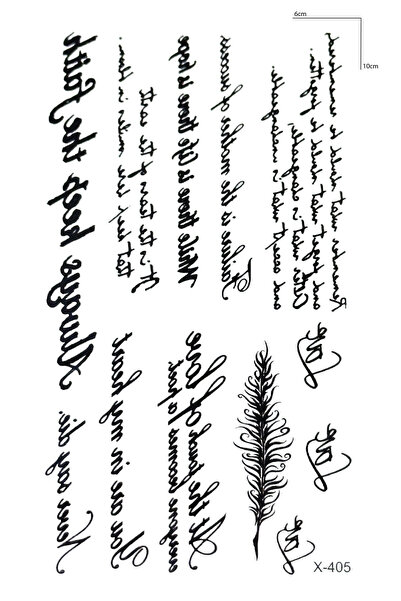 6cm
10cm
Always keep the Faith
It is the tears of the earth
that keep her smiles in bloom.
While there is life there is hope
Failure is the mother of success
Remember what should be remembered,
and forget what should be forgotten.
Alter what is changeable,
and accept what is
Never say die.
You are in my heart
At the touch of love
everyone becomes a poet
Love
Love
Love
X-405